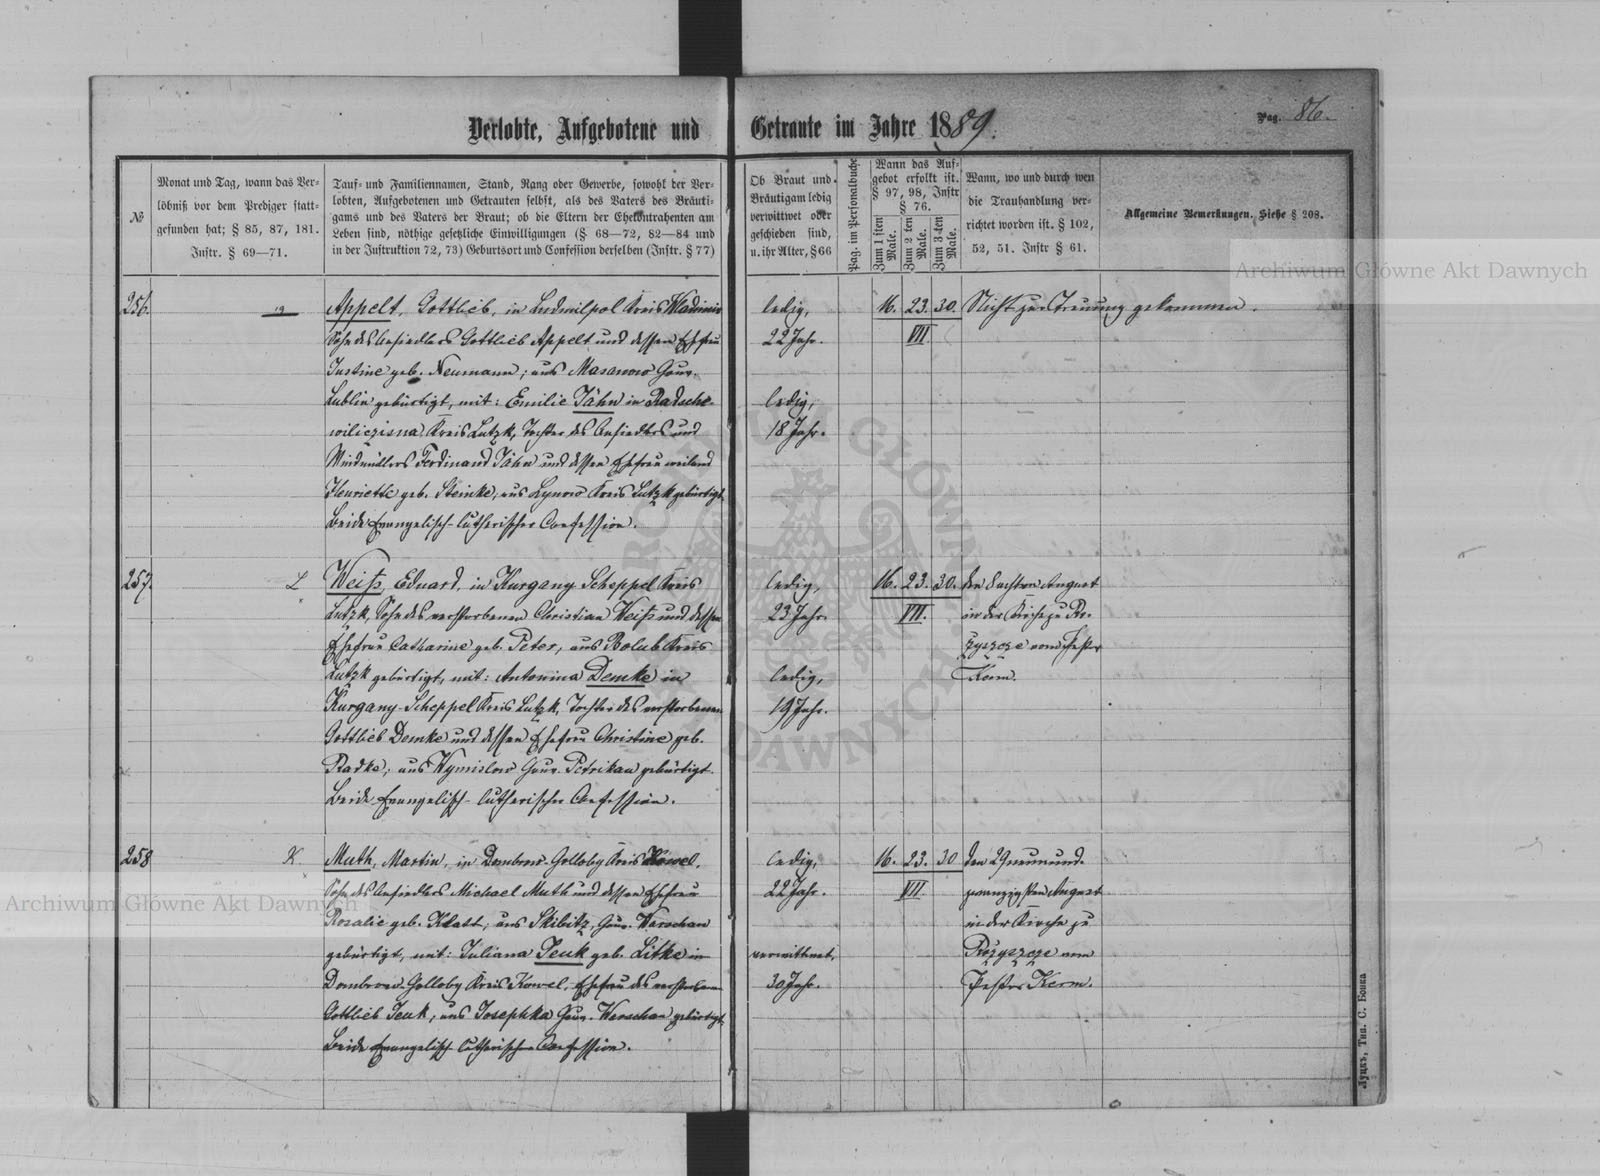 Verlobte, Aufgebotene und Getraute im Jahre 1889.
Pag. 86.
№
Monat und Tag, wann das Ver-
löbniß vor dem Prediger statt-
gefunden hat; § 85, 87, 181.
Instr. § 69—71.
Tauf- und Familiennamen, Stand, Rang oder Gewerbe, sowohl der Ver-
lobten, Aufgebotenen und Getrauten selbst, als des Vaters des Bräuti-
gams und des Vaters der Braut; ob die Eltern der Ehekontrahenten am
Leben sind, nöthige gesetzliche Einwilligungen (§ 68—72, 82—84 und
in der Instruktion 72, 73) Geburtsort und Confession derselben (Instr. § 77)
Ob Braut und
Bräutigam ledig
verwittwet oder
geschieden sind,
u. ihr Alter, § 66
Pag. im Personalbuche
Wann das Auf-
gebot erfolkt ist.
§ 97, 98, Instr
§ 76.
Zum 1 sten
Male.
Zum 2 ten
Male.
Zum 3-ten
Male.
Wann, wo und durch wen
die Trauhandlung ver-
richtet worden ist. § 102,
52, 51. Instr § 61.
Allgemeine Bemerkungen. Siehe § 208.
256.
Appelt, Gottlieb, in Ludmilpol Kreis Wladimir
Sohn des Ansiedlers Gottlieb Appelt und dessen Ehefrau
Justine geb. Neumann; aus Masanowo Gouv.
Lublin gebürtigt, mit: Emilie Jähn in Radsche-
wiliczisna Kreis Lutzk, Tochter des Ansiedlers und
Windmüllers Ferdinand Jähn und dessen Ehefrau weiland
Henriette geb. Steinke, aus Lynow Kreis Lutzk gebürtigt,
Beide Evangelisch-lutherischer Confession.
ledig,
22 Jahr.
ledig,
18 Jahr.
16. 23. 30.
VII
Nicht zur Trauung gekommen.
257.
L
Weiß, Eduard, in Kurgany Scheppel Kreis
Lutzk, Sohn des verstorbenen Christian Weiß und dessen
Ehefrau Catharine geb. Peter, aus Bolub Kreis
Lutzk gebürtigt, mit: Antonina Demke in
Kurgany-Scheppel Kreis Lutzk, Tochter des verstorbenen
Gottlieb Demke und dessen Ehefrau Christine geb.
Radke; aus Wymislow Gouv. Petrikau gebürtigt.
Beide Evangelisch-lutherischer Confession.
ledig,
23 Jahr.
ledig,
19 Jahr.
16. 23. 30.
VII.
den August
in der Kirche zu Ro-
zyszcze vom Pastor
Kerm.
258
K.
Muth, Martin, in Dombrowo-Golloby Kreis Kowel,
Sohn des Ansiedlers Michael Muth und dessen Ehefrau
Rosalie geb. Klatt; aus Skibitz, Gouv. Warschau
gebürtigt, mit: Juliana Jeuk geb. Litke in
Dombrowo-Golloby Kreis Kowel, Ehefrau des verstorbenen
Gottlieb Jeuk; aus Josephka Gouv. Warschau gebürtigt,
Beide Evangelisch-lutherischer Confession.
ledig,
22 Jahr.
verwittwet,
30 Jahr.
16. 23. 30
VII
den 29 neunund-
zwanzigsten August
in der Kirche zu
Rozyszcze vom
Pastor Kerm.
Луцкъ, Тип. С. Бонка
Archiwum Główne Akt Dawnych
Archiwum Główne Akt Dawnych